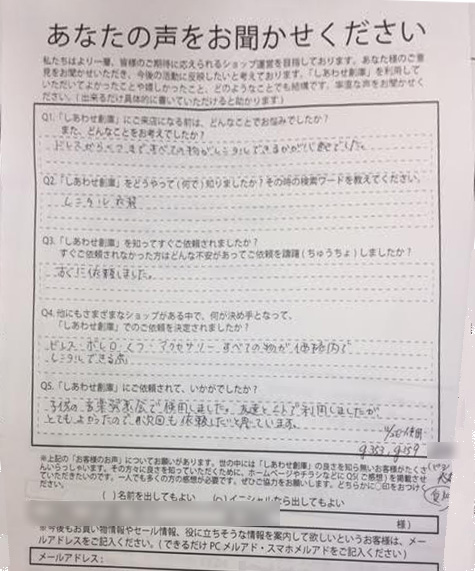 あなたの声をお聞かせください
私たちはより一層、皆様のご期待に応えられるショップ運営を目指しております。あなた様のご意
見をお聞かせいただき、今後の活動に反映したいと考えております。「しあわせ創庫」を利用して
いただいてよかったことや嬉しかったこと、どのようなことでも結構です、率直な声をお聞かせく
ださい。(出来るだけ具体的に書いていただけると助かります)
Q1.「しあわせ創庫」にご来店になる前は、どんなことでお悩みでしたか?
また、どんなことをお考えでしたか?
ドレスからくつまですべての物がレンタルできるかが心配でした。
Q2.「しあわせ創庫」をどうやって(何で)知りましたか?その時の検索ワードを教えてください。
レンタル 衣装
Q3.「しあわせ創庫」を知ってすぐご依頼されましたか?
すぐご依頼されなかった方はどんな不安があってご依頼を躊躇(ちゅうちょ)しましたか?
すぐに依頼しました。
Q4.他にもさまざまなショップがある中で、何が決め手となって、
「しあわせ創庫」でのご依頼を決定されましたか?
ドレス・ボレロ・くつ・アクセサリー すべての物が価格内で
レンタルできる点
Q5.「しあわせ創庫」にご依頼されて、いかがでしたか?
子供の音楽発表会で使用しました。友達と2人で利用しましたが、
とてもよかったので、次回も依頼したいと思っています。
使用
9353, 9359
※上記の「お客様のお声」についてお願いがあります。世の中には「しあわせ創庫」の良さを知らない お客様がたくさ
んいらっしゃいます。その方々に良さを知っていただくために、ホームページやチラシなどにQ5(ご感想)を掲載させ
ていただきたいのです。一人でも多くの方の感想が必要です。ぜひご協力をお願いします。どちらかに○印をおつけく
( )名前を出してもよい ( )イニシャルなら出してもよい
様)
※今後もお買い物情報やセール情報、役に立ちそうな情報を案内して欲しいというお客様は、メー
ルアドレスをご記入ください。(できるだけPCメルアド・スマホメルアドをご記入ください)
メールアドレス: